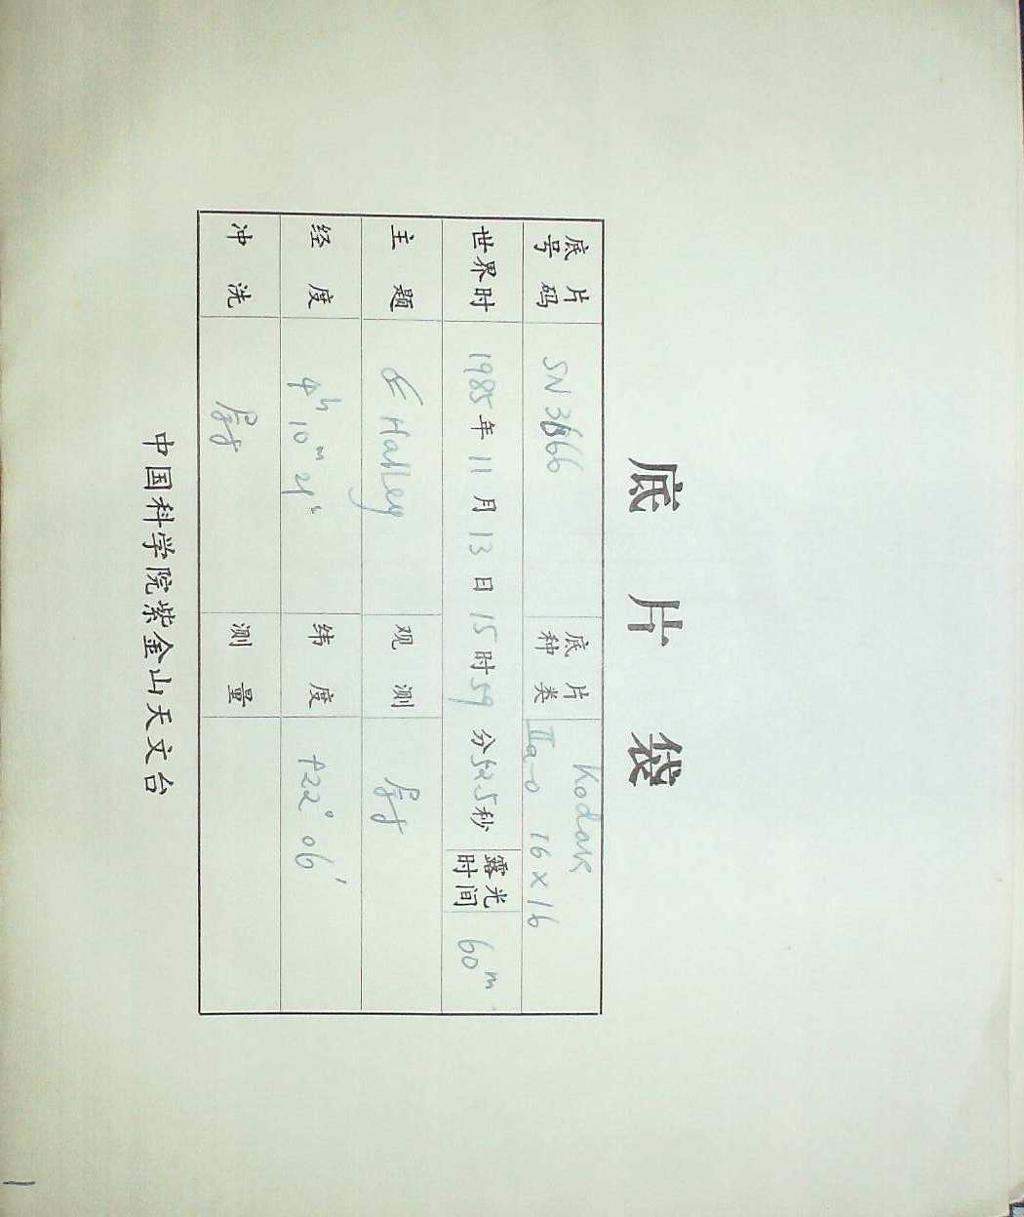 底片袋
底片号码 SN3666 底片种类 Kodak IIa-O 16×16
世界时 1985年11月13日15时59分52.5秒 露光时间 60m
主题 Halley 观测
经度 4h 10m 纬度 +22° 06′
冲洗 测量
中国科学院紫金山天文台